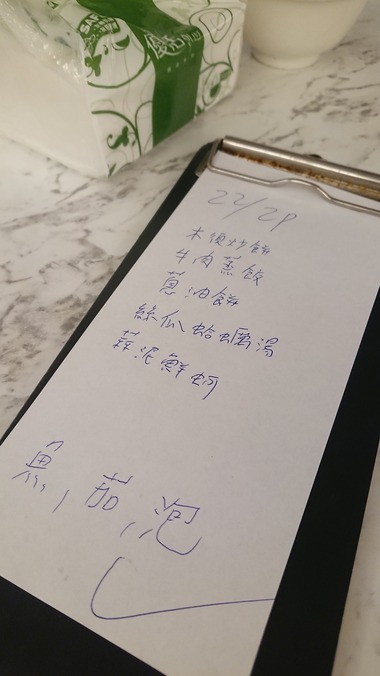 SAF
22/2P
木須炒餅
牛肉蒸餃
蔥油餅
絲瓜蛤蠣湯
蒜泥鮮蚵
魚,茄,泡